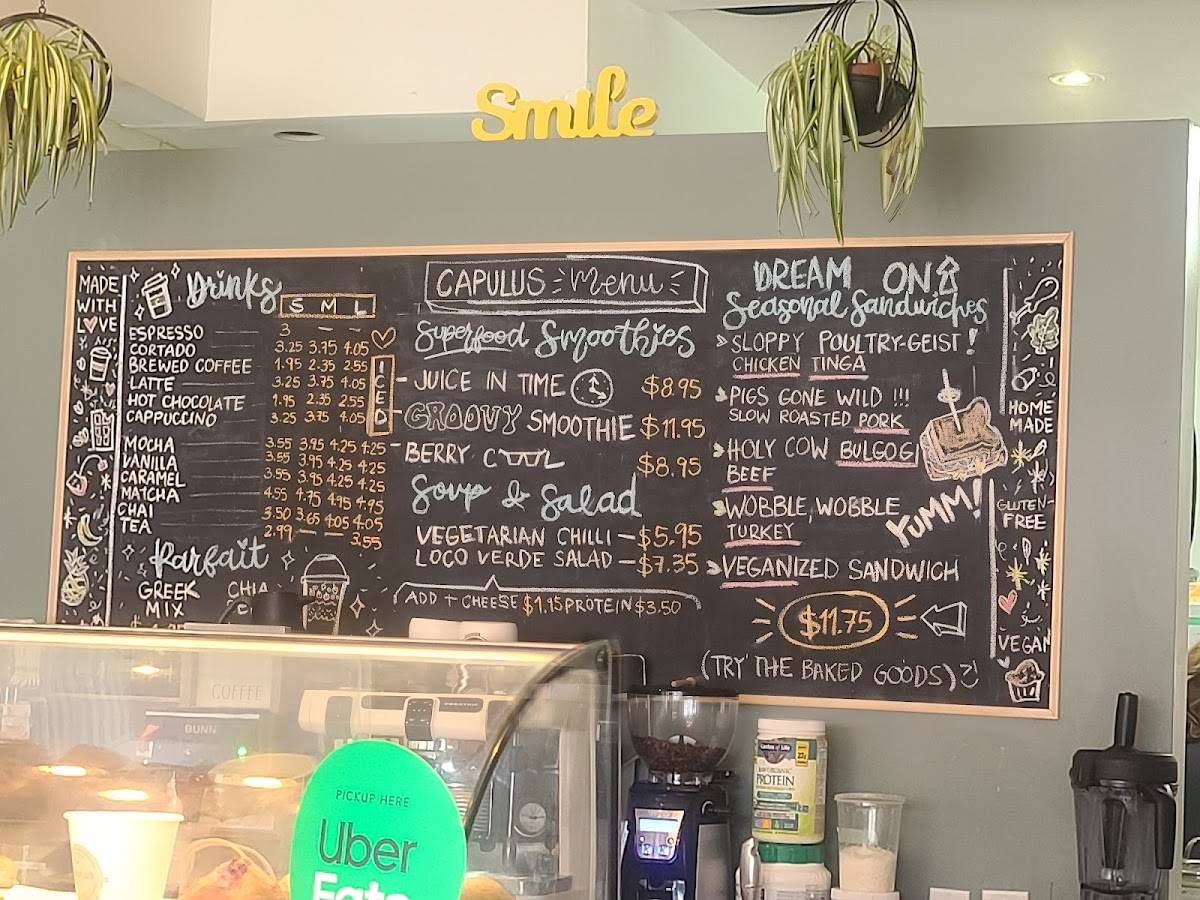 Smile
MADE
WITH
LOVE
Drinks
S M L
ESPRESSO 3 — —
CORTADO 3.25 3.75 4.05
BREWED COFFEE 1.95 2.35 2.55
LATTE 3.25 3.75 4.05
HOT CHOCOLATE 1.95 2.35 2.55
CAPPUCCINO 3.25 3.75 4.05
ICED
MOCHA 3.55 3.95 4.25 4.25
VANILLA 3.55 3.95 4.25 4.25
CARAMEL 3.55 3.95 4.25 4.25
MATCHA 4.55 4.75 4.95 4.95
CHAI 3.50 3.65 4.05 4.05
TEA 2.99 — 3.55
Parfait
GREEK CHIA
MIX
CAPULUS Menu
Superfood Smoothies
JUICE IN TIME $8.95
GROOVY SMOOTHIE $11.95
BERRY COOL $8.95
Soup & Salad
VEGETARIAN CHILLI — $5.95
LOCO VERDE SALAD — $7.35
ADD + CHEESE $1.95 PROTEIN $3.50
DREAM ON
Seasonal Sandwiches
SLOPPY POULTRY-GEIST!
CHICKEN TINGA
PIGS GONE WILD !!!
SLOW ROASTED PORK
HOLY COW BULGOGI
BEEF
WOBBLE, WOBBLE
TURKEY
YUMM!
VEGANIZED SANDWICH
$11.75
(TRY THE BAKED GOODS)
HOME
MADE
GLUTEN-
FREE
VEGAN
COFFEE
BUNN
PICKUP HERE
Uber
Eats
Garden of Life
RAW ORGANIC
PROTEIN